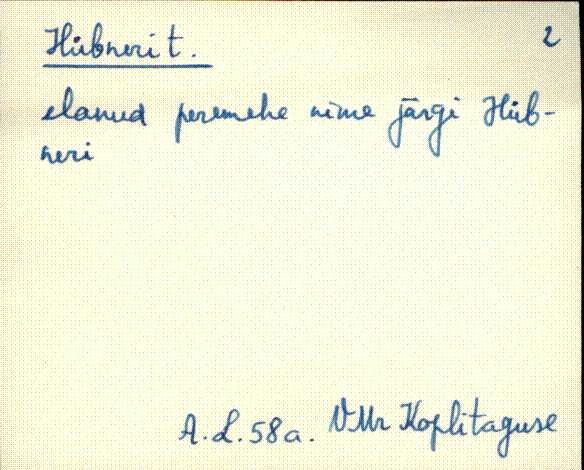 Hübneri t. 2
elanud peremehe nime järgi Hüb-
neri
A. L. 58a. VMr Koplitaguse